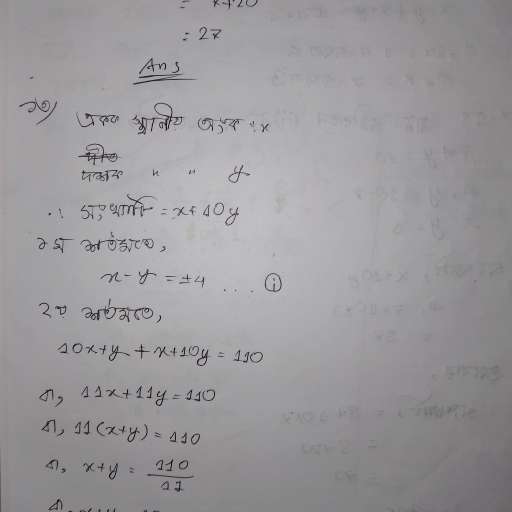 = x+20
= 27
Ans
২৩) একক স্থানীয় অংক = x
দশক " " y
∴ সংখ্যাটি = x+10y
১ম শর্তমতে,
x-y = ±4 ... (i)
২য় শর্তমতে,
10x+y+x+10y = 110
বা, 11x+11y = 110
বা, 11(x+y) = 110
বা, x+y = 110/11